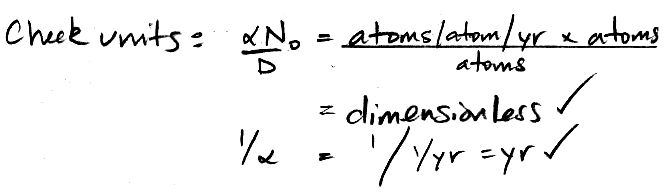 Check units: αN₀/D = atoms/atom/yr x atoms / atoms
= dimensionless ✓
1/α = 1/1/yr = yr ✓